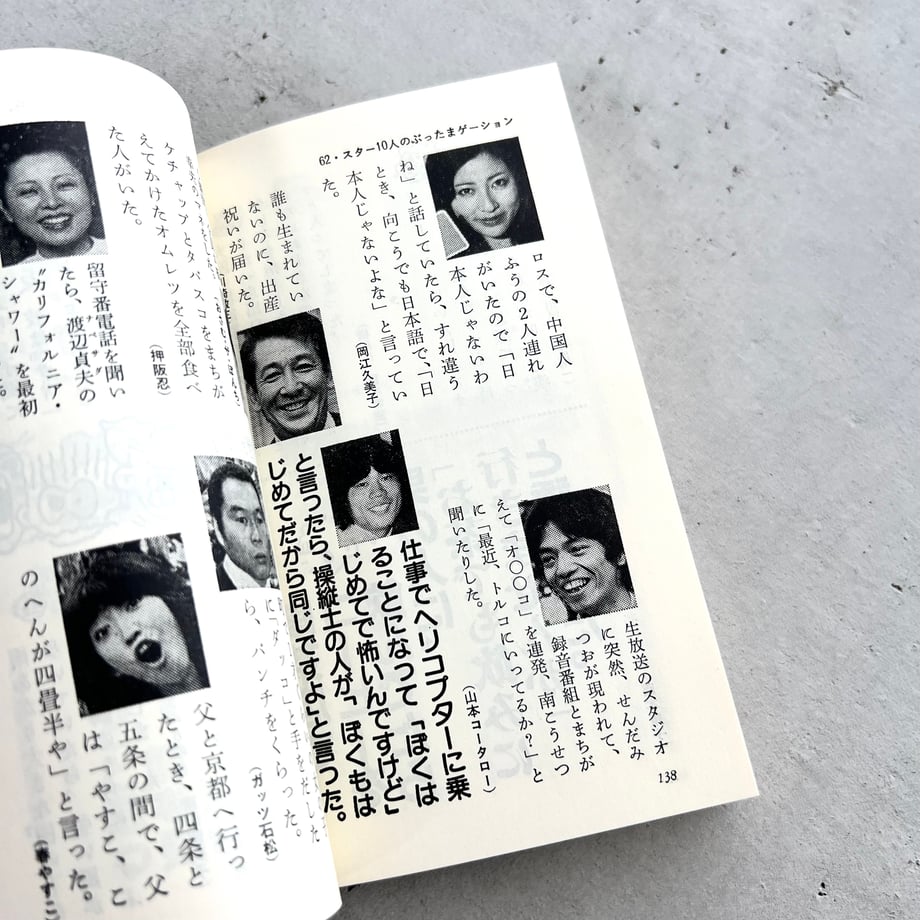 62・スター10人のぶったまゲーション
ロスで、中国人
ふうの2人連れ
がいたので「日
本人じゃないわ
ね」と話していたら、すれ違う
とき、向こうでも日本語で、「日
本人じゃないよな」と言ってい
た。
(岡江久美子)
誰も生まれてい
ないのに、出産
祝いが届いた。
生放送のスタジオ
に突然、せんだみ
つおが現われて、
録音番組とまちが
えて「オ〇〇コ」を連発、南こうせつ
に「最近、トルコにいってるか?」と
聞いたりした。
(山本コータロー)
仕事でヘリコプターに乗
ることになって「ぼくは
じめてで怖いんですけど」
と言ったら、操縦士の人が「ぼくもは
じめてだから同じですよ」と言った。
138
ケチャップとタバスコをまちが
えてかけたオムレツを全部食べ
た人がいた。
(押阪忍)
留守番電話を聞い
たら、渡辺貞夫の
ナベサダ
〝カリフォルニア・
シャワー〟を最初
ら、パンチをくらった。
(ガッツ石松)
父と京都へ行っ
たとき、四条と
五条の間で、父
は「やすこ、こ
のへんが四畳半や」と言った。
(春やすこ)